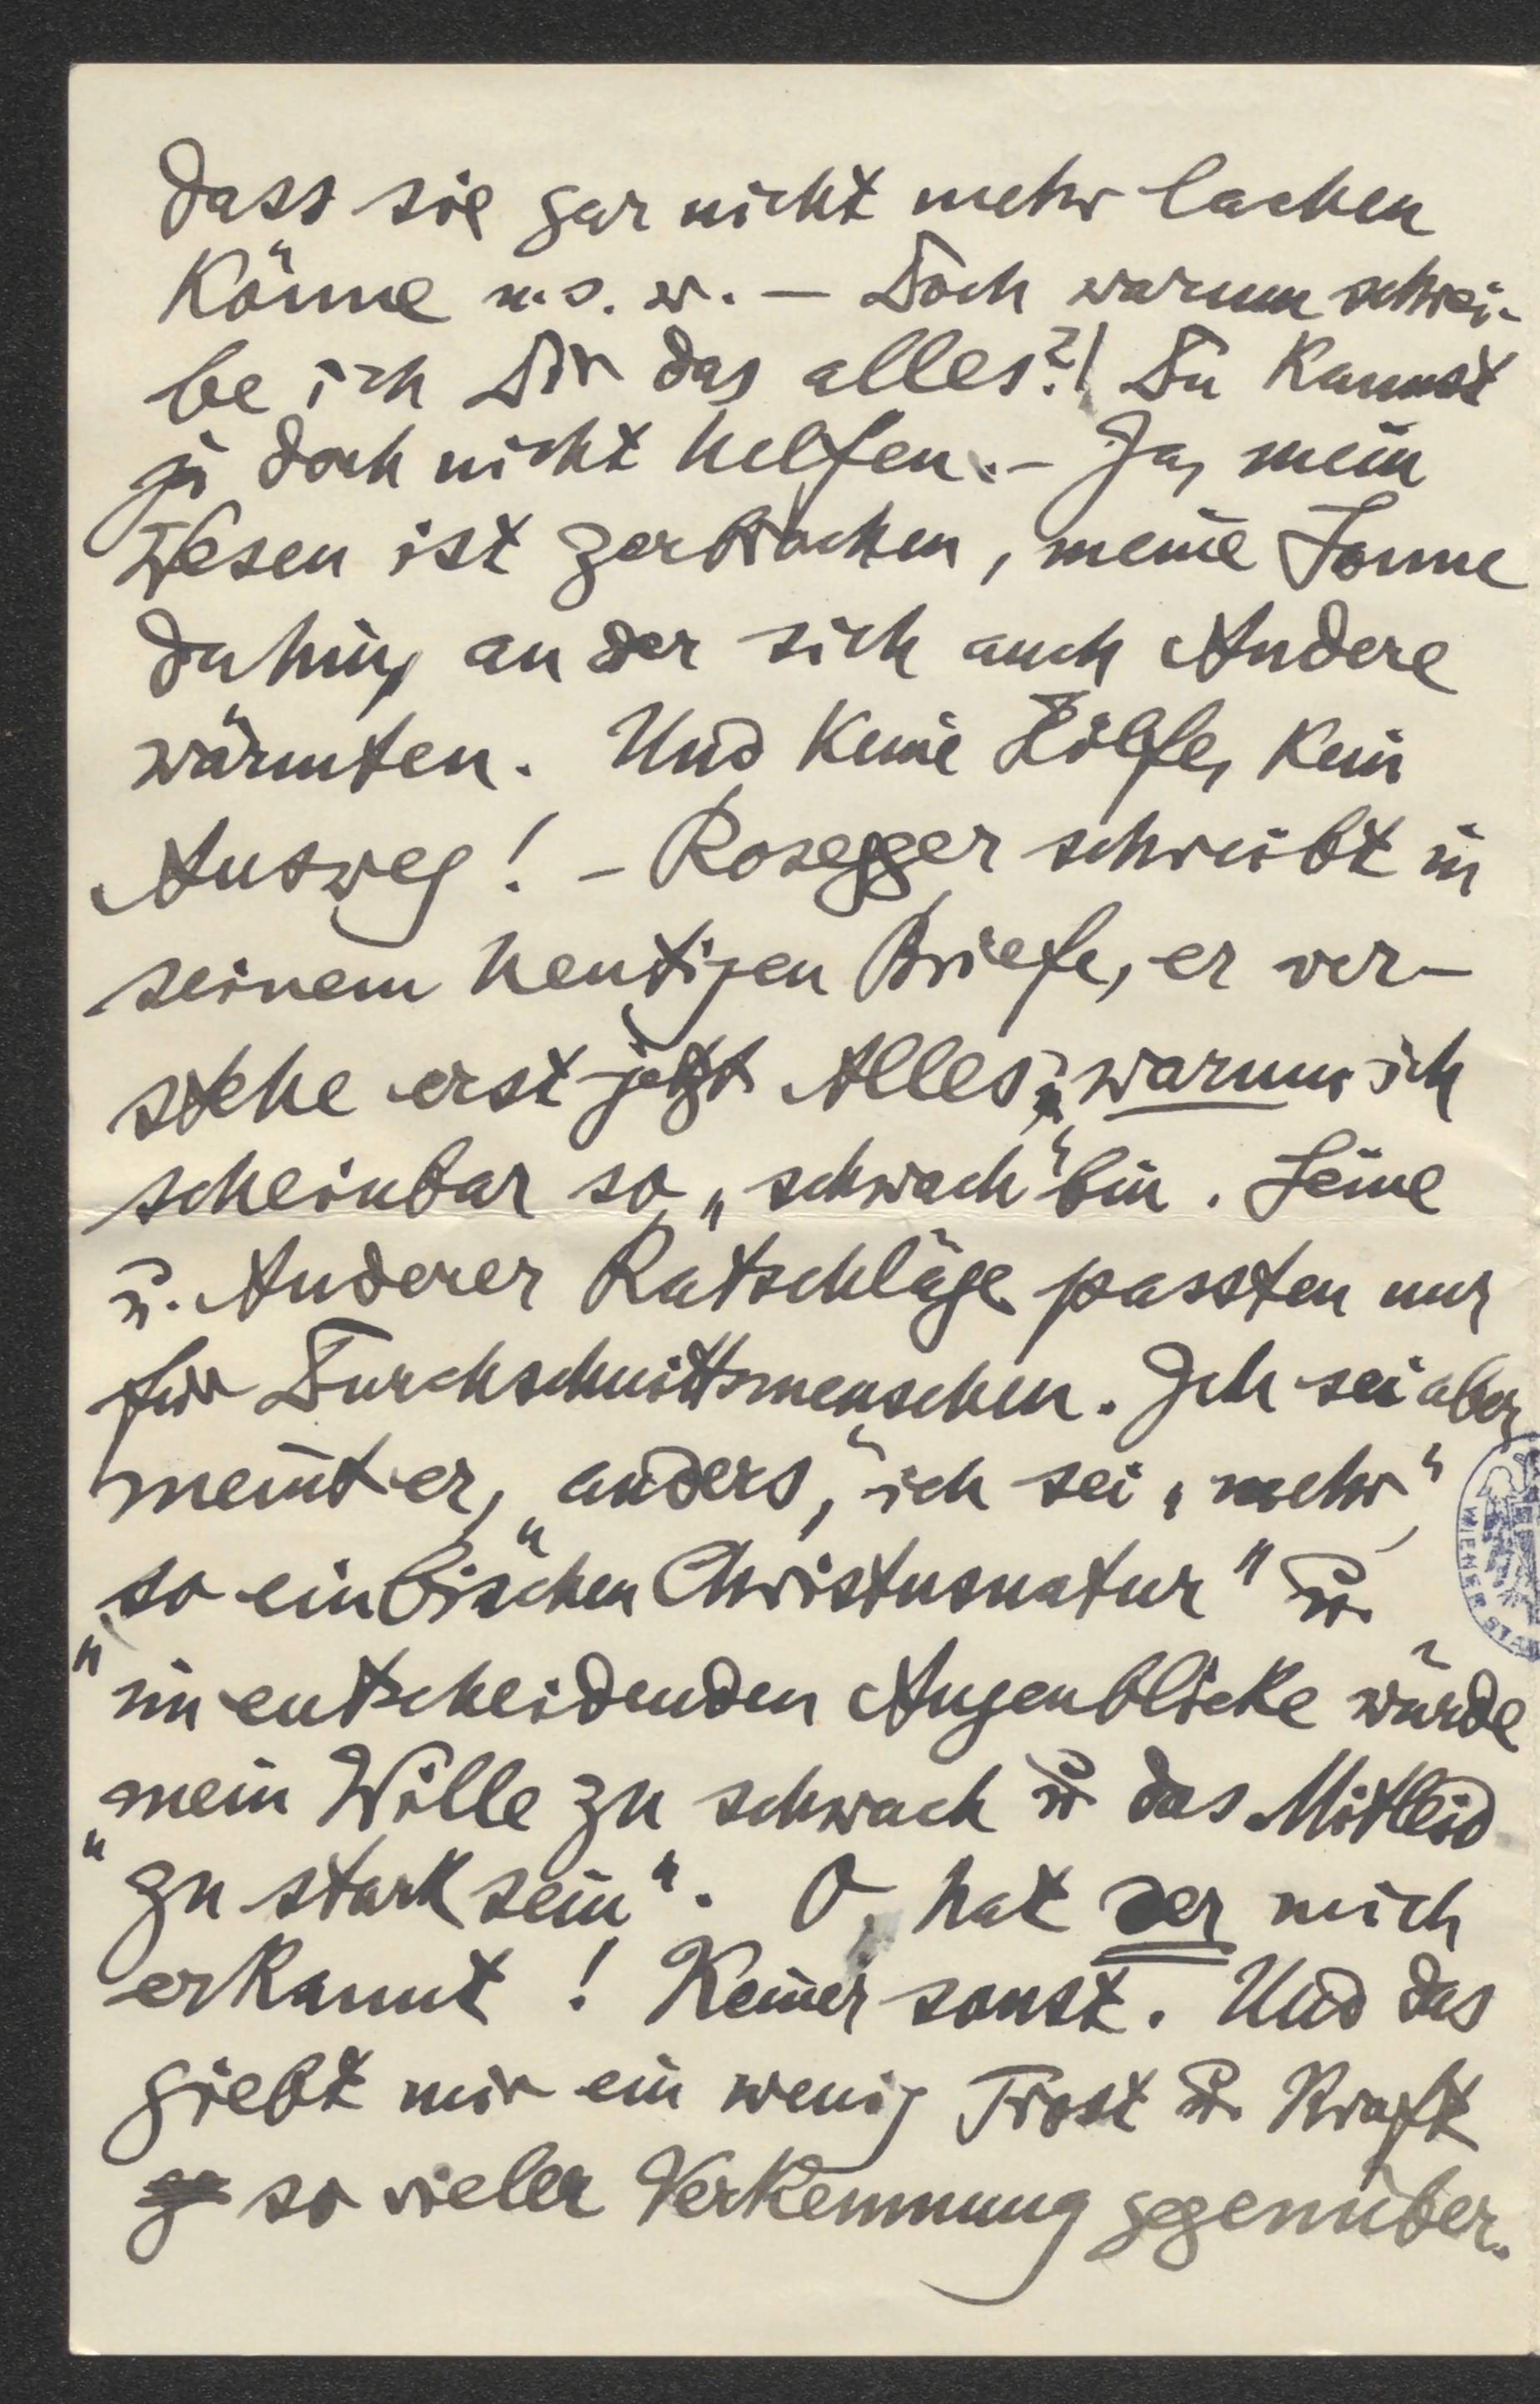 dass sie gar nicht mehr lachen
könne u. s. w. – Doch warum schrei-
be ich Dir das alles?! Du kannst
ja doch nicht helfen. – Ja, mein
Wesen ist zerbrochen, meine Sonne
dahin, an der sich auch Andere
wärmten. Und keine Hülfe, kein
Ausweg! – Rosegger schreibt in
seinem heutigen Briefe, er ver-
stehe erst jetzt Alles u. warum ich
scheinbar so „schwach“ bin. Seine
u. Anderer Ratschläge passten nur
für Durchschnittsmenschen. Ich sei aber,
meint er, „anders,“ ich sei „mehr“,
„so ein bischen Christusnatur“ u.
„im entscheidenden Augenblicke würde
„mein Wille zu schwach u. das Mitleid
„zu stark sein“. O, hat der mich
erkannt! Keiner sonst. Und das
giebt mir ein wenig Trost u. Kraft
so vieler Verkennung gegenüber.
WIENER